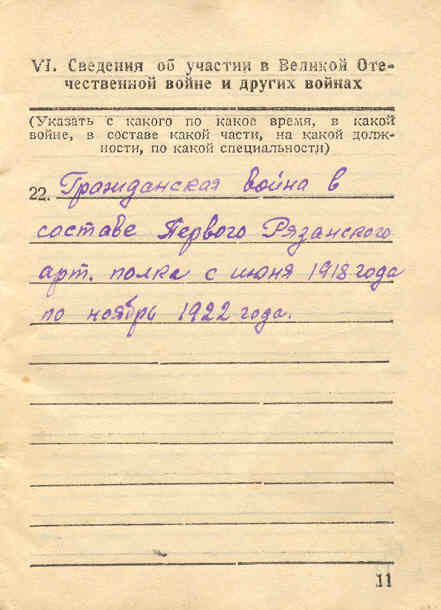 VI. Сведения об участии в Великой Оте-
чественной войне и других войнах
(Указать с какого по какое время, в какой
войне, в составе какой части, на какой долж-
ности, по какой специальности)
22. Гражданская война в
составе Первого Рязанского
арт. полка с июня 1918 года
по ноябрь 1922 года.
11